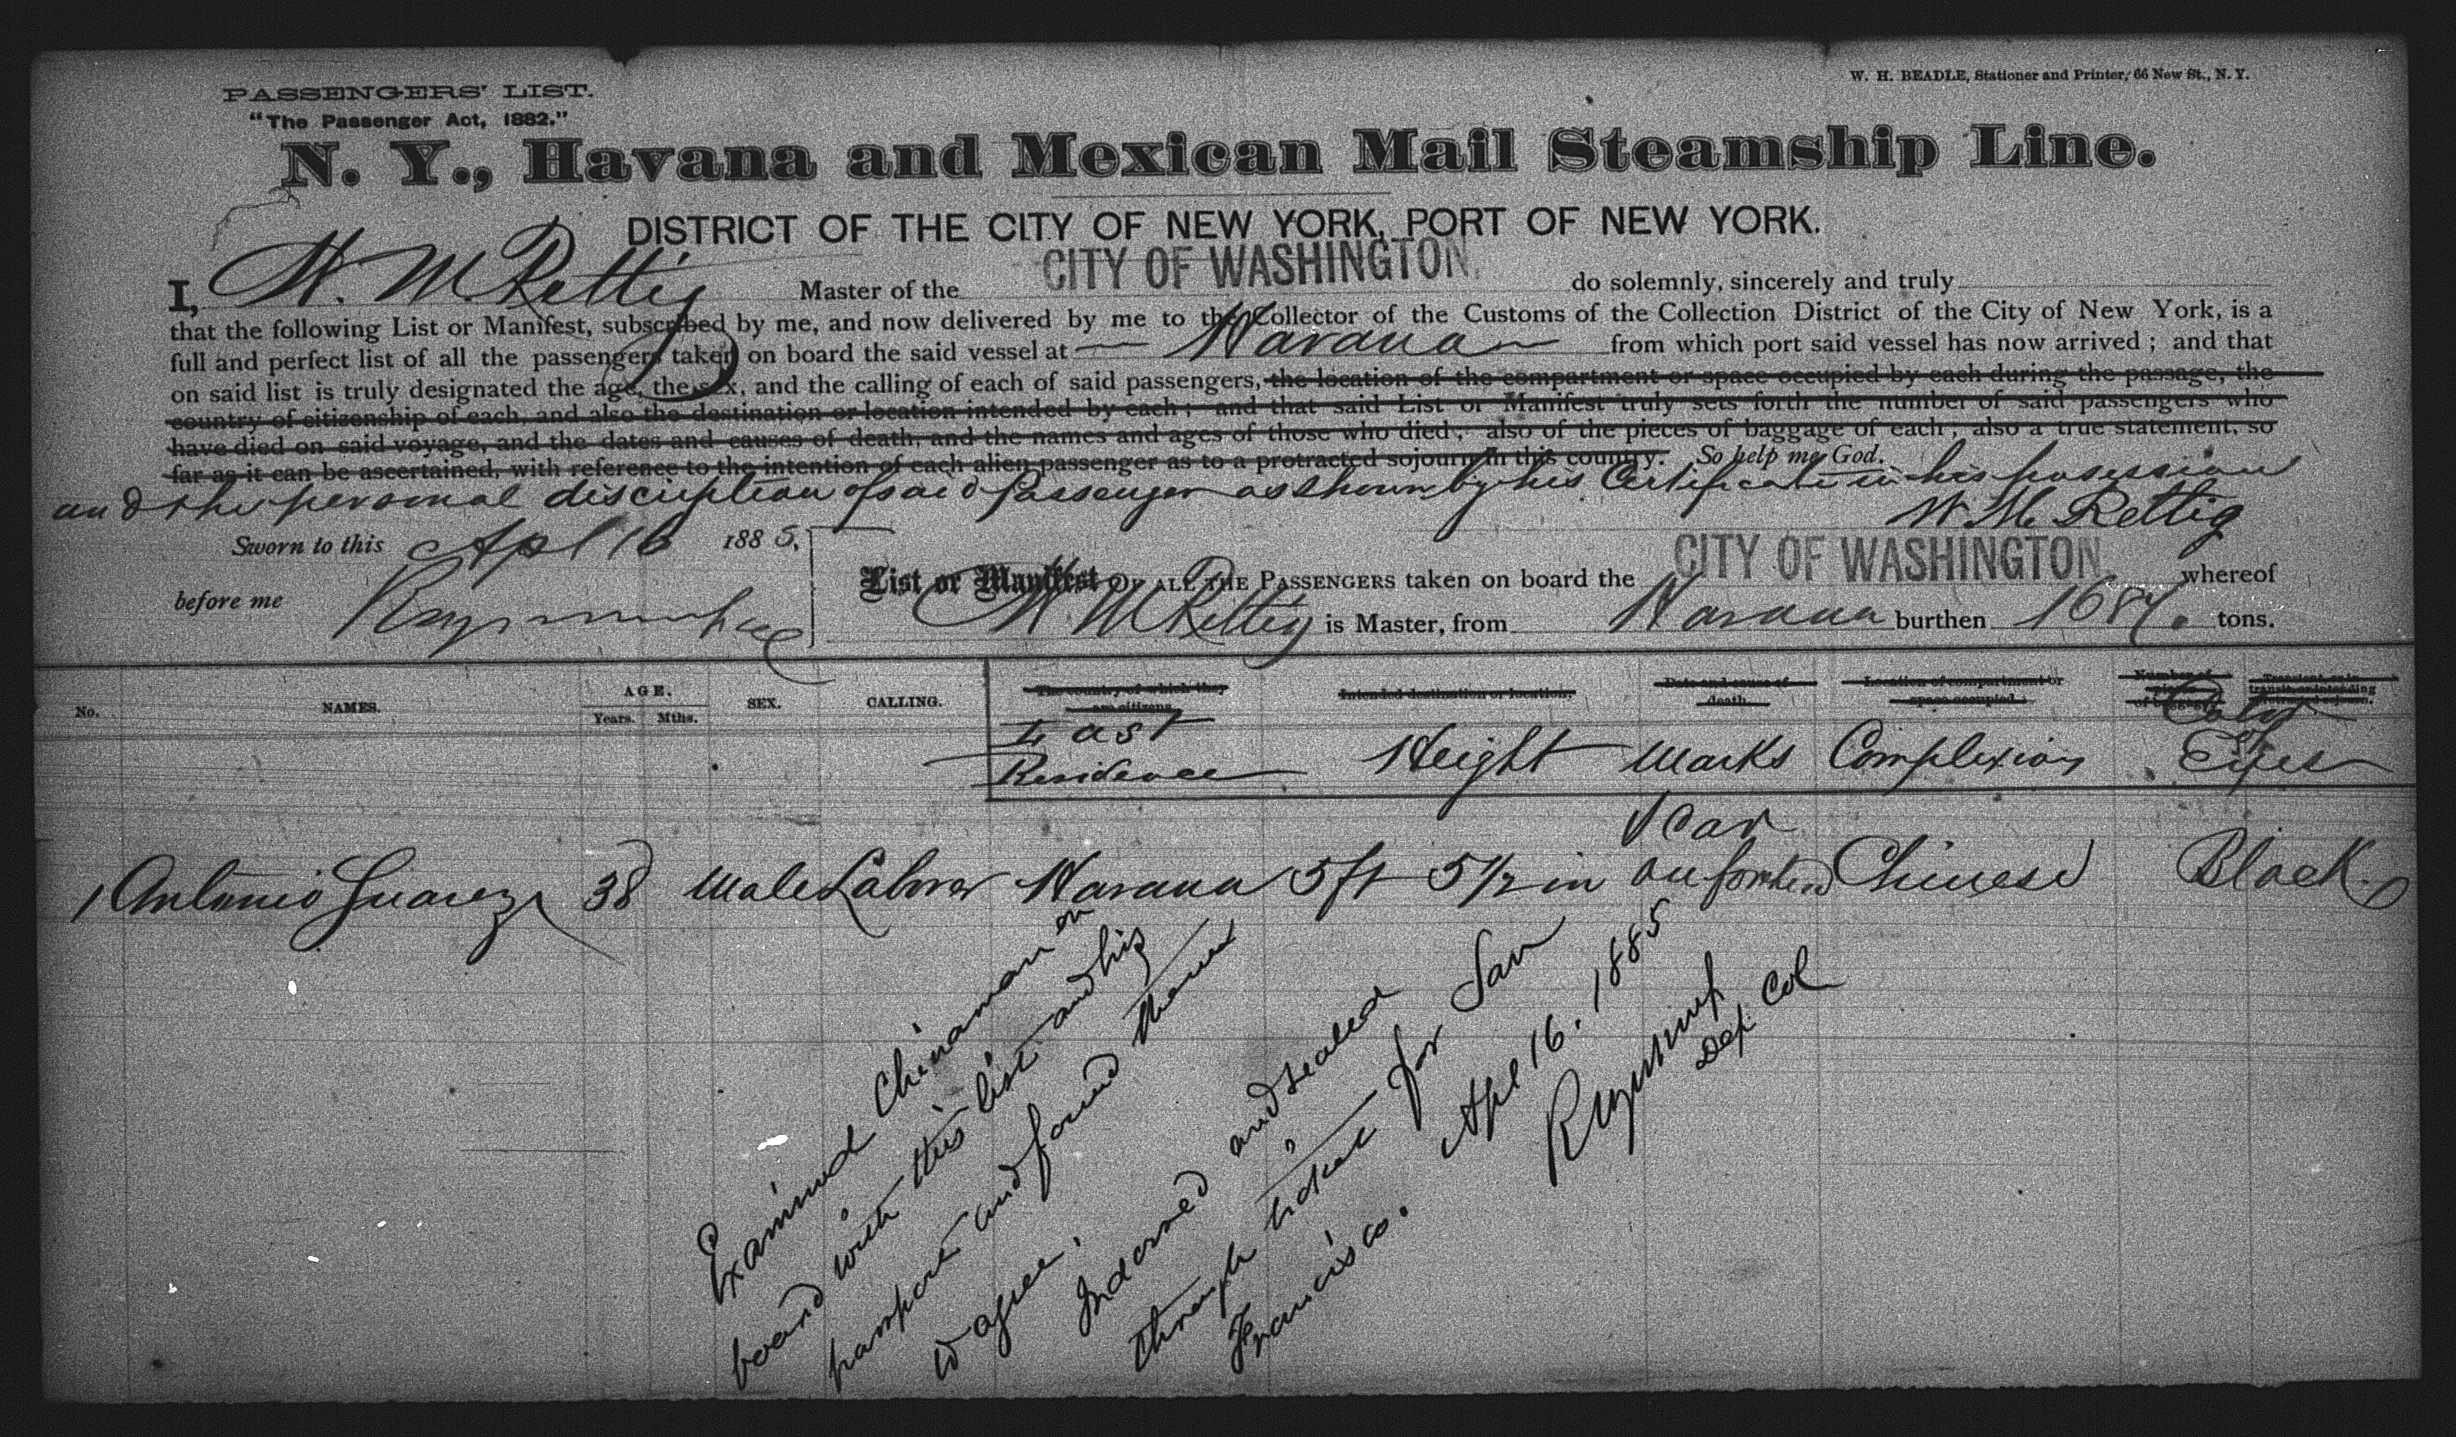 PASSENGERS' LIST.
"The Passenger Act, 1882."
W. H. BEADLE, Stationer and Printer, 66 New St., N. Y.
N. Y., Havana and Mexican Mail Steamship Line.
DISTRICT OF THE CITY OF NEW YORK, PORT OF NEW YORK.
I, W. M. Rettig Master of the CITY OF WASHINGTON do solemnly, sincerely and truly
that the following List or Manifest, subscribed by me, and now delivered by me to the Collector of the Customs of the Collection District of the City of New York, is a
full and perfect list of all the passengers taken on board the said vessel at Havana from which port said vessel has now arrived; and that
on said list is truly designated the age, the sex, and the calling of each of said passengers, the location of the compartment or space occupied by each during the passage, the
country of citizenship of each, and also the destination or location intended by each; and that said List or Manifest truly sets forth the number of said passengers who
have died on said voyage, and the dates and causes of death, and the names and ages of those who died; also of the pieces of baggage of each; also a true statement, so
far as it can be ascertained, with reference to the intention of each alien passenger as to a protracted sojourn in this country. So help me God.
and the personal discription of said Passenger as shown by his Certificate in his posession
W. M. Rettig
Sworn to this Apl 16 1885.
before me
List or Manifest OF ALL THE PASSENGERS taken on board the CITY OF WASHINGTON whereof
W. M Rettig is Master, from Havana burthen 1684 tons.
No. NAMES. AGE. Years. Mths. SEX. CALLING. The country of which they are citizens. Intended destination or location. Date and cause of death. Location of compartment or space occupied. Number of pieces of baggage.
Last Residence Height Marks Complexion Color of Eyes
1 Antonio Suarez 38 Male Laborer Havana 5 ft 5 1/2 in Scar on forehead Chinese Black
Examined Chinaman on
board with this list and his
passport and found them
to agree.
Indorsed and sealed
through ticket for San
Francisco. Apl 16. 1885
Dep. Col